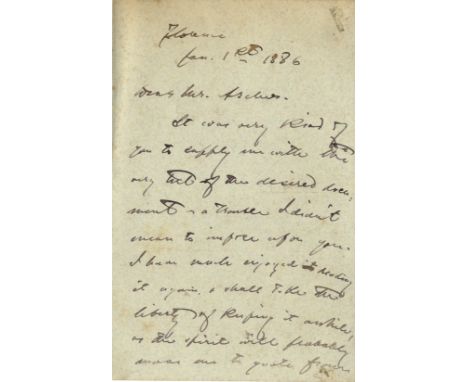 Florence
Jan. 1st 1886
Dear Mr.
It was very kind of
you to supply me with the
very text of the desired docu-
ment - a trouble I didn't
mean to impose upon you.
I have much enjoyed reading
it again, & shall take the
liberty of keeping it awhile,
as the spirit will probably
move me to quote from